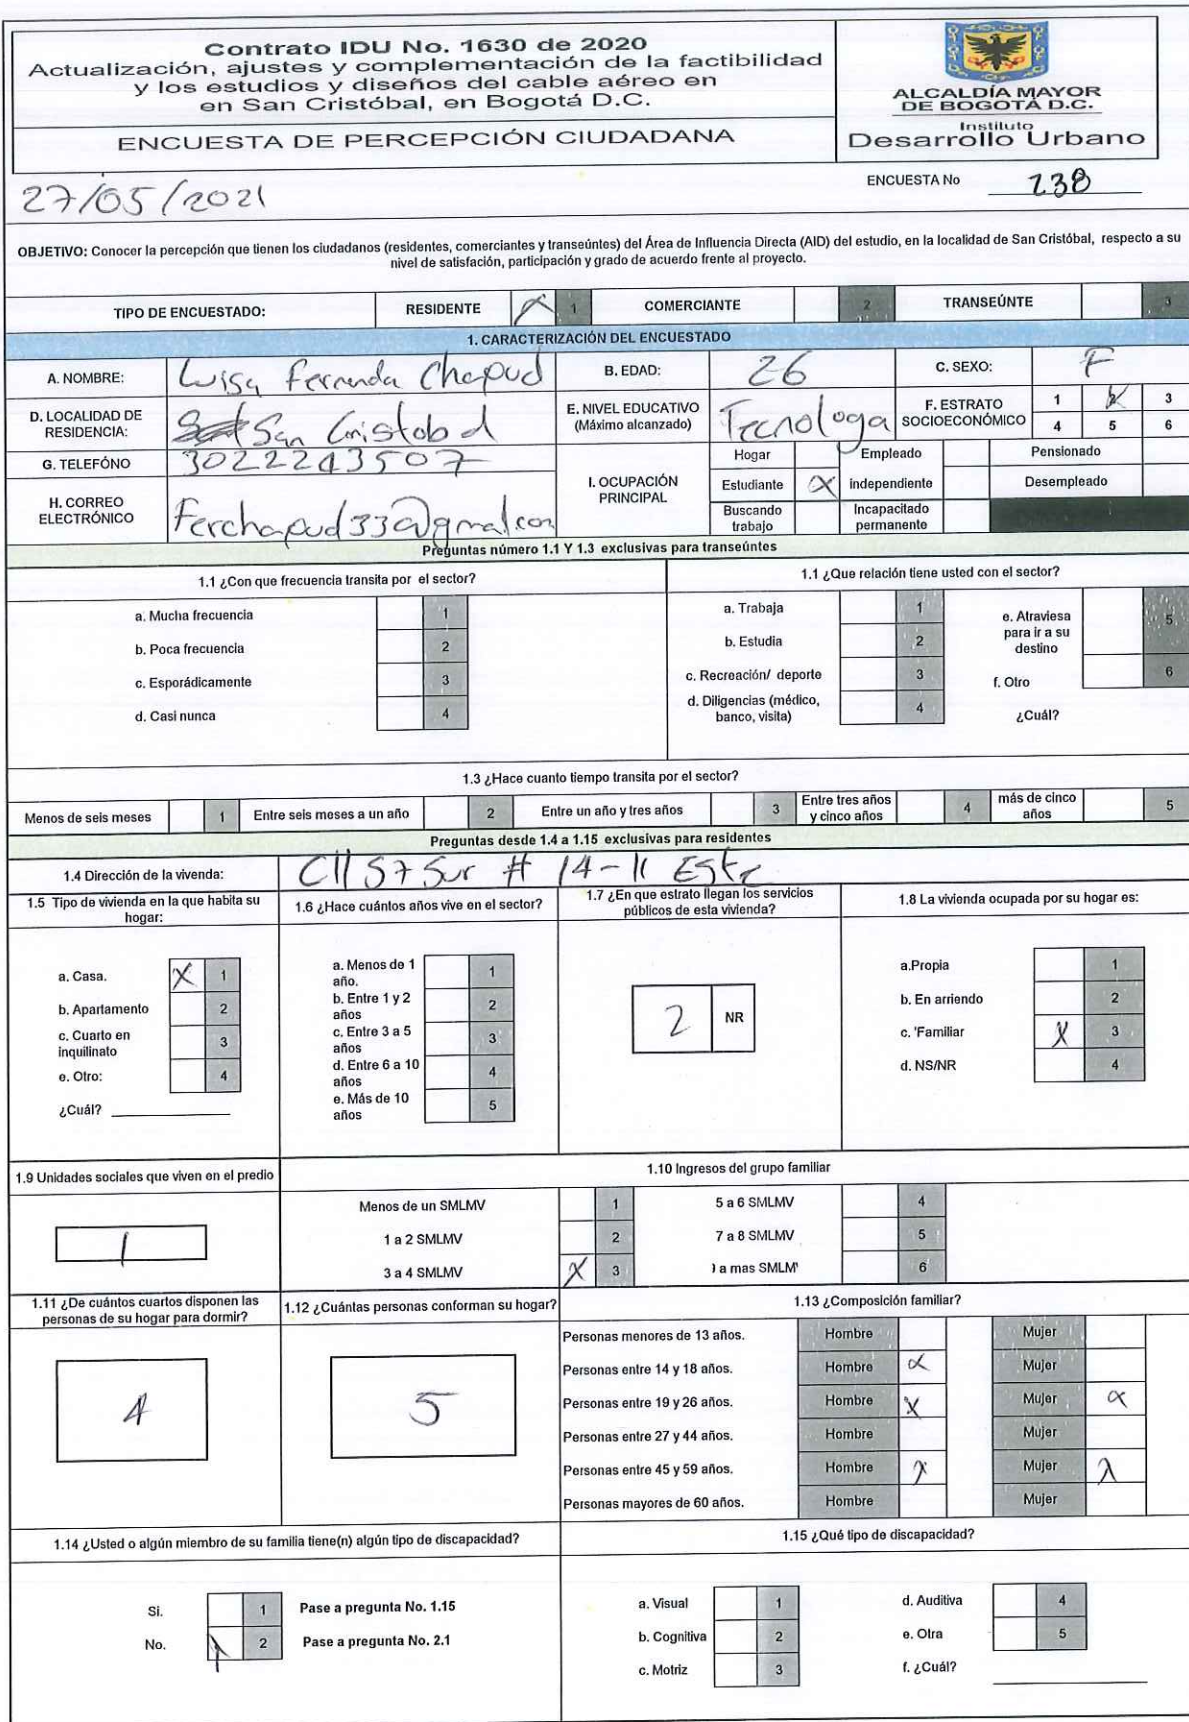 Contrato IDU No. 1630 de 2020
Actualización, ajustes y complementación de la factibilidad
y los estudios y diseños del cable aéreo en
en San Cristóbal, en Bogotá D.C.
ENCUESTA DE PERCEPCIÓN CIUDADANA
ALCALDÍA MAYOR
DE BOGOTÁ D.C.
Instituto
Desarrollo Urbano
27/05/2021
ENCUESTA No 238
OBJETIVO: Conocer la percepción que tienen los ciudadanos (residentes, comerciantes y transeúntes) del Área de Influencia Directa (AID) del estudio, en la localidad de San Cristóbal, respecto a su
nivel de satisfacción, participación y grado de acuerdo frente al proyecto.
TIPO DE ENCUESTADO: RESIDENTE X 1 COMERCIANTE 2 TRANSEÚNTE 3
1. CARACTERIZACIÓN DEL ENCUESTADO
A. NOMBRE: Luisa Fernanda Chapud B. EDAD: 26 C. SEXO: F
D. LOCALIDAD DE RESIDENCIA: San Cristobal E. NIVEL EDUCATIVO (Máximo alcanzado) Tecnologa F. ESTRATO SOCIOECONÓMICO 1 X 3 4 5 6
G. TELEFÓNO 3022243507
H. CORREO ELECTRÓNICO Ferchapud33@gmal.com
I. OCUPACIÓN PRINCIPAL
Hogar Empleado Pensionado
Estudiante X independiente Desempleado
Buscando trabajo Incapacitado permanente
Preguntas número 1.1 Y 1.3 exclusivas para transeúntes
1.1 ¿Con que frecuencia transita por el sector?
a. Mucha frecuencia 1
b. Poca frecuencia 2
c. Esporádicamente 3
d. Casi nunca 4
1.1 ¿Que relación tiene usted con el sector?
a. Trabaja 1
b. Estudia 2
c. Recreación/ deporte 3
d. Diligencias (médico, banco, visita) 4
e. Atraviesa para ir a su destino 5
f. Otro 6
¿Cuál?
1.3 ¿Hace cuanto tiempo transita por el sector?
Menos de seis meses 1 Entre seis meses a un año 2 Entre un año y tres años 3 Entre tres años y cinco años 4 más de cinco años 5
Preguntas desde 1.4 a 1.15 exclusivas para residentes
1.4 Dirección de la vivenda: Cll 57 Sur # 14-11 Este
1.5 Tipo de vivienda en la que habita su hogar:
a. Casa. X 1
b. Apartamento 2
c. Cuarto en inquilinato 3
e. Otro: 4
¿Cuál?
1.6 ¿Hace cuántos años vive en el sector?
a. Menos de 1 año. 1
b. Entre 1 y 2 años 2
c. Entre 3 a 5 años 3
d. Entre 6 a 10 años 4
e. Más de 10 años 5
1.7 ¿En que estrato llegan los servicios públicos de esta vivienda?
2 NR
1.8 La vivienda ocupada por su hogar es:
a.Propia 1
b. En arriendo 2
c. 'Familiar X 3
d. NS/NR 4
1.9 Unidades sociales que viven en el predio
1
1.10 Ingresos del grupo familiar
Menos de un SMLMV 1 5 a 6 SMLMV 4
1 a 2 SMLMV 2 7 a 8 SMLMV 5
3 a 4 SMLMV X 3 a mas SMLM 6
1.11 ¿De cuántos cuartos disponen las personas de su hogar para dormir?
4
1.12 ¿Cuántas personas conforman su hogar?
5
1.13 ¿Composición familiar?
Personas menores de 13 años. Hombre Mujer
Personas entre 14 y 18 años. Hombre X Mujer
Personas entre 19 y 26 años. Hombre X Mujer X
Personas entre 27 y 44 años. Hombre Mujer
Personas entre 45 y 59 años. Hombre X Mujer X
Personas mayores de 60 años. Hombre Mujer
1.14 ¿Usted o algún miembro de su familia tiene(n) algún tipo de discapacidad?
Si. 1 Pase a pregunta No. 1.15
No. X 2 Pase a pregunta No. 2.1
1.15 ¿Qué tipo de discapacidad?
a. Visual 1 d. Auditiva 4
b. Cognitiva 2 e. Otra 5
c. Motriz 3 f. ¿Cuál?